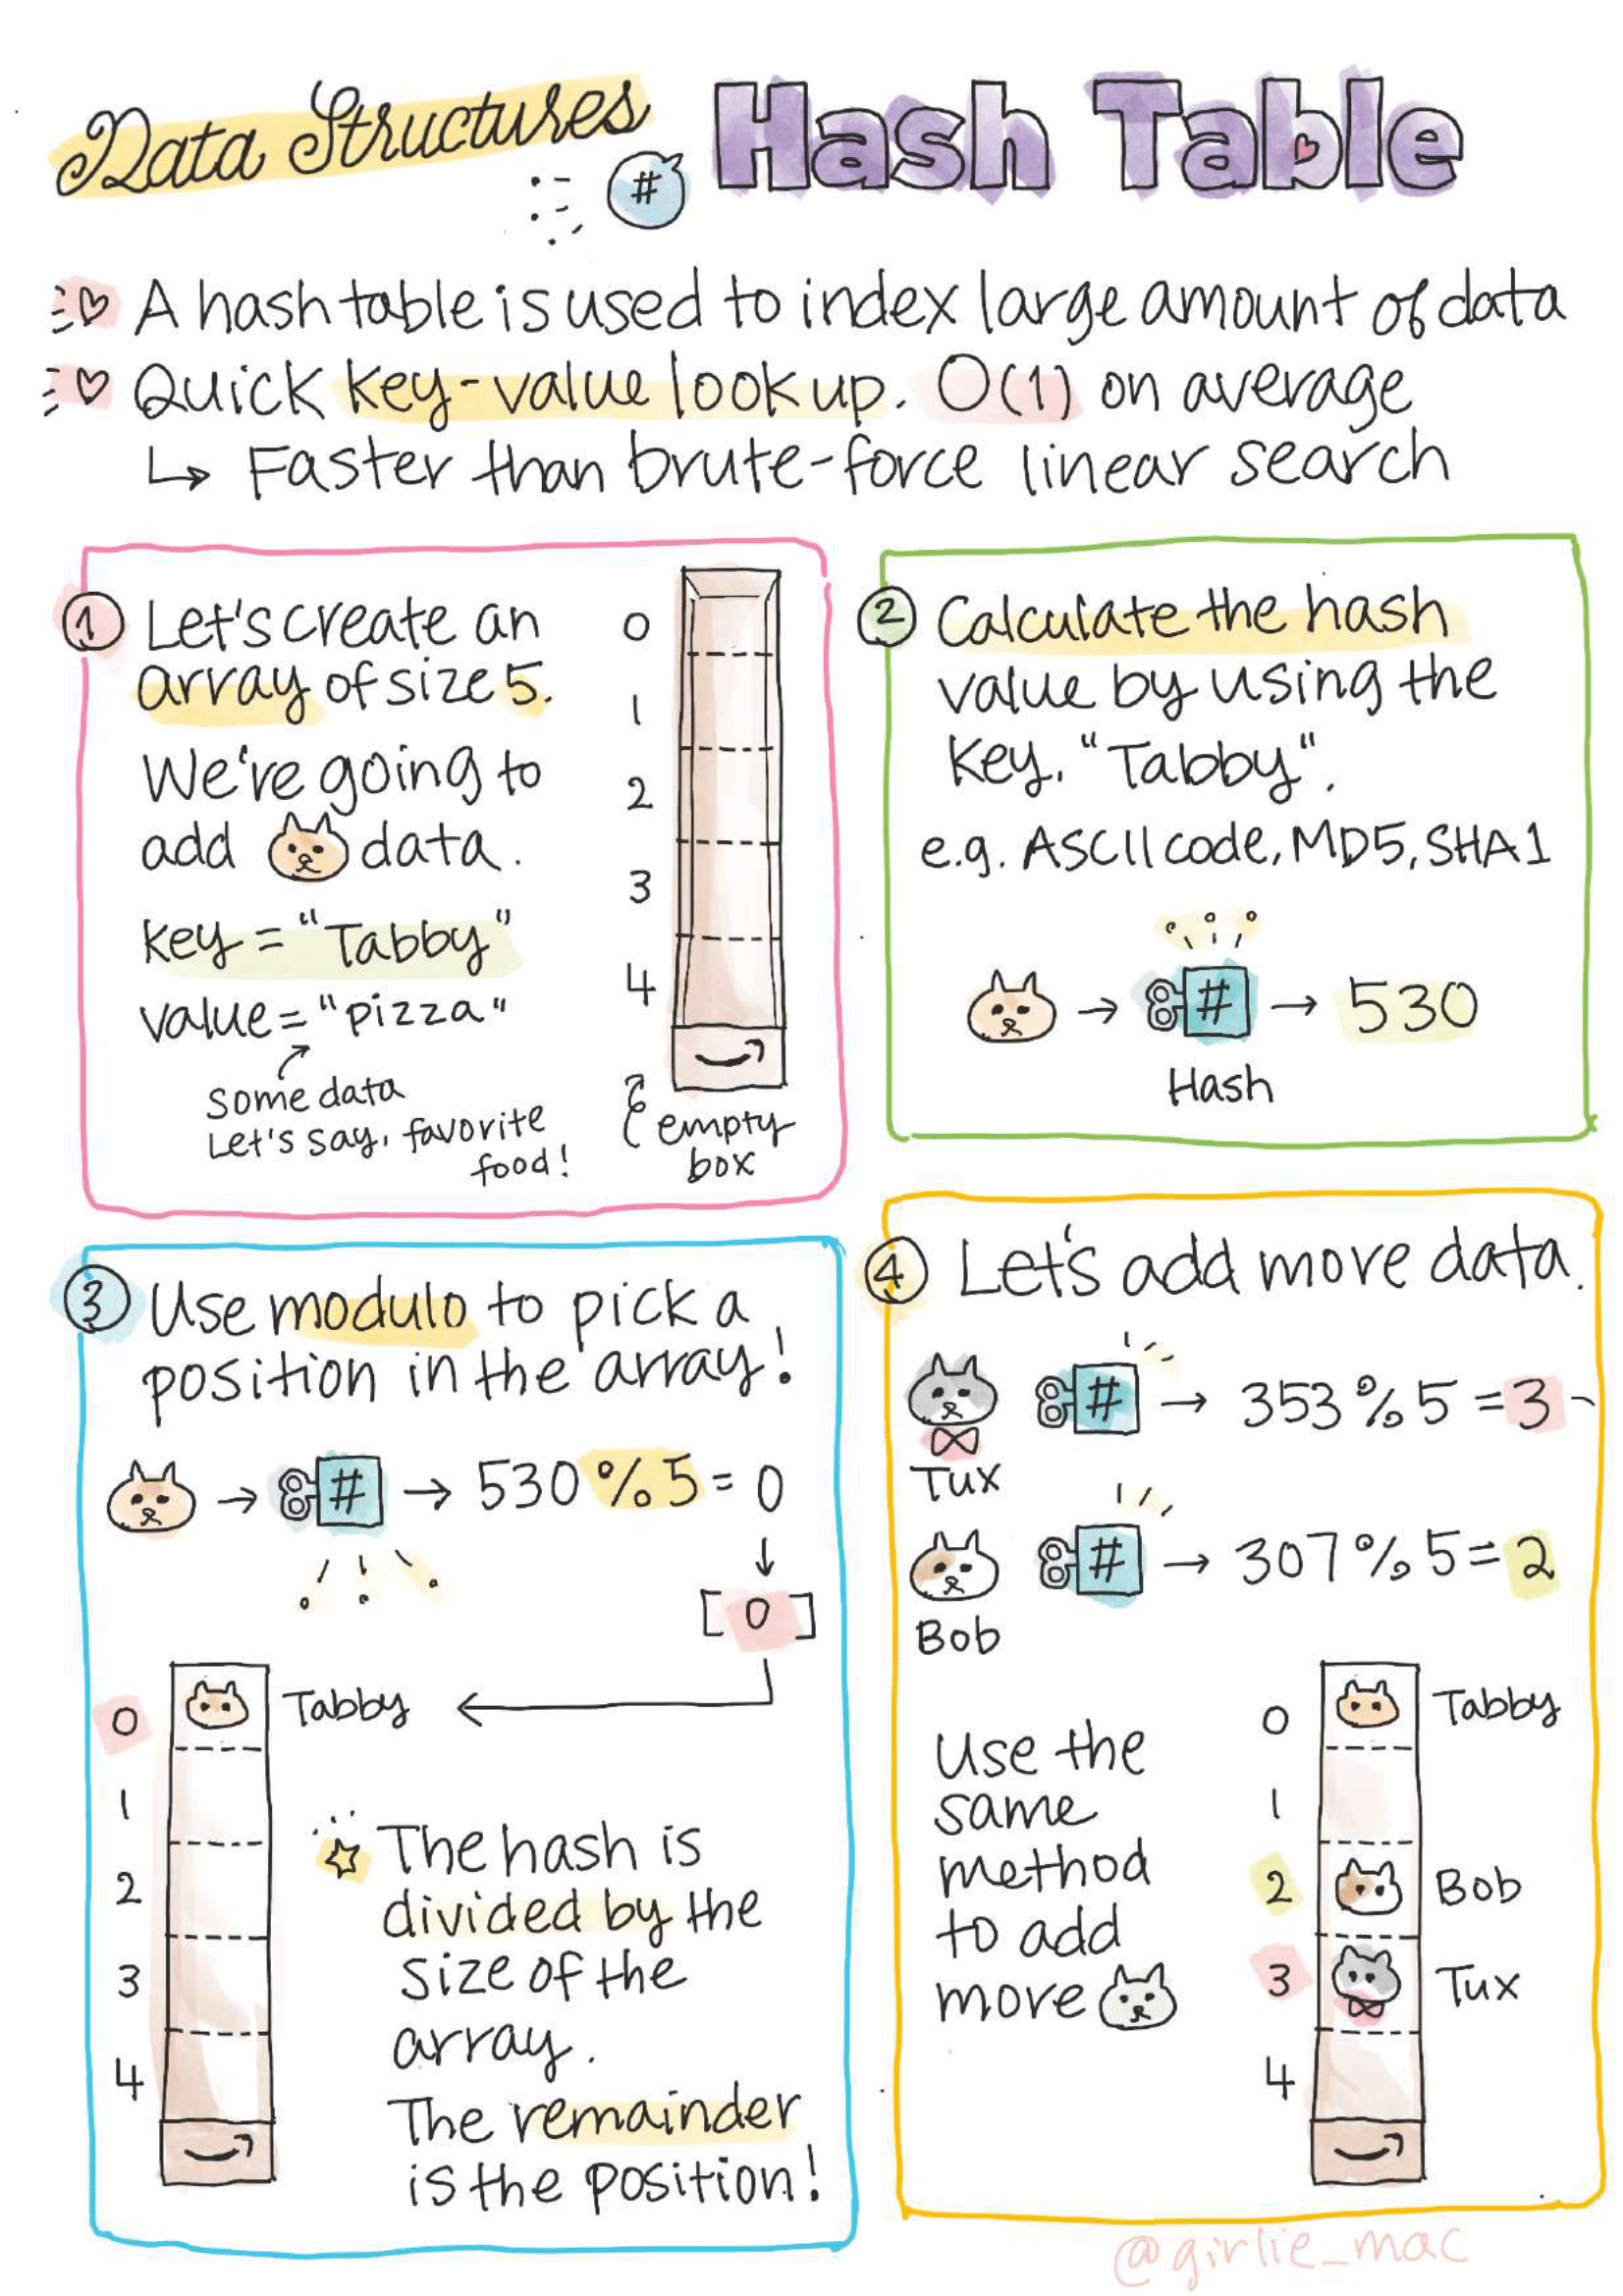 Data Structures
#
Hash Table
A hash table is used to index large amount of data
Quick key-value look up. O(1) on average
↳ Faster than brute-force linear search
1 Let's create an
array of size 5.
We're going to
add data.
key = "Tabby"
value = "pizza"
some data
Let's say, favorite
food!
0
1
2
3
4
empty
box
2 Calculate the hash
value by using the
key, "Tabby".
e.g. ASCII code, MD5, SHA1
→ # → 530
Hash
3 Use modulo to pick a
position in the array!
→ # → 530 % 5 = 0
↓
[0]
0 Tabby ←
1
2
3
4
The hash is
divided by the
size of the
array.
The remainder
is the position!
4 Let's add more data.
# → 353 % 5 = 3 -
Tux
# → 307 % 5 = 2
Bob
Use the
same
method
to add
more
0 Tabby
1
2 Bob
3 Tux
4
@girlie_mac